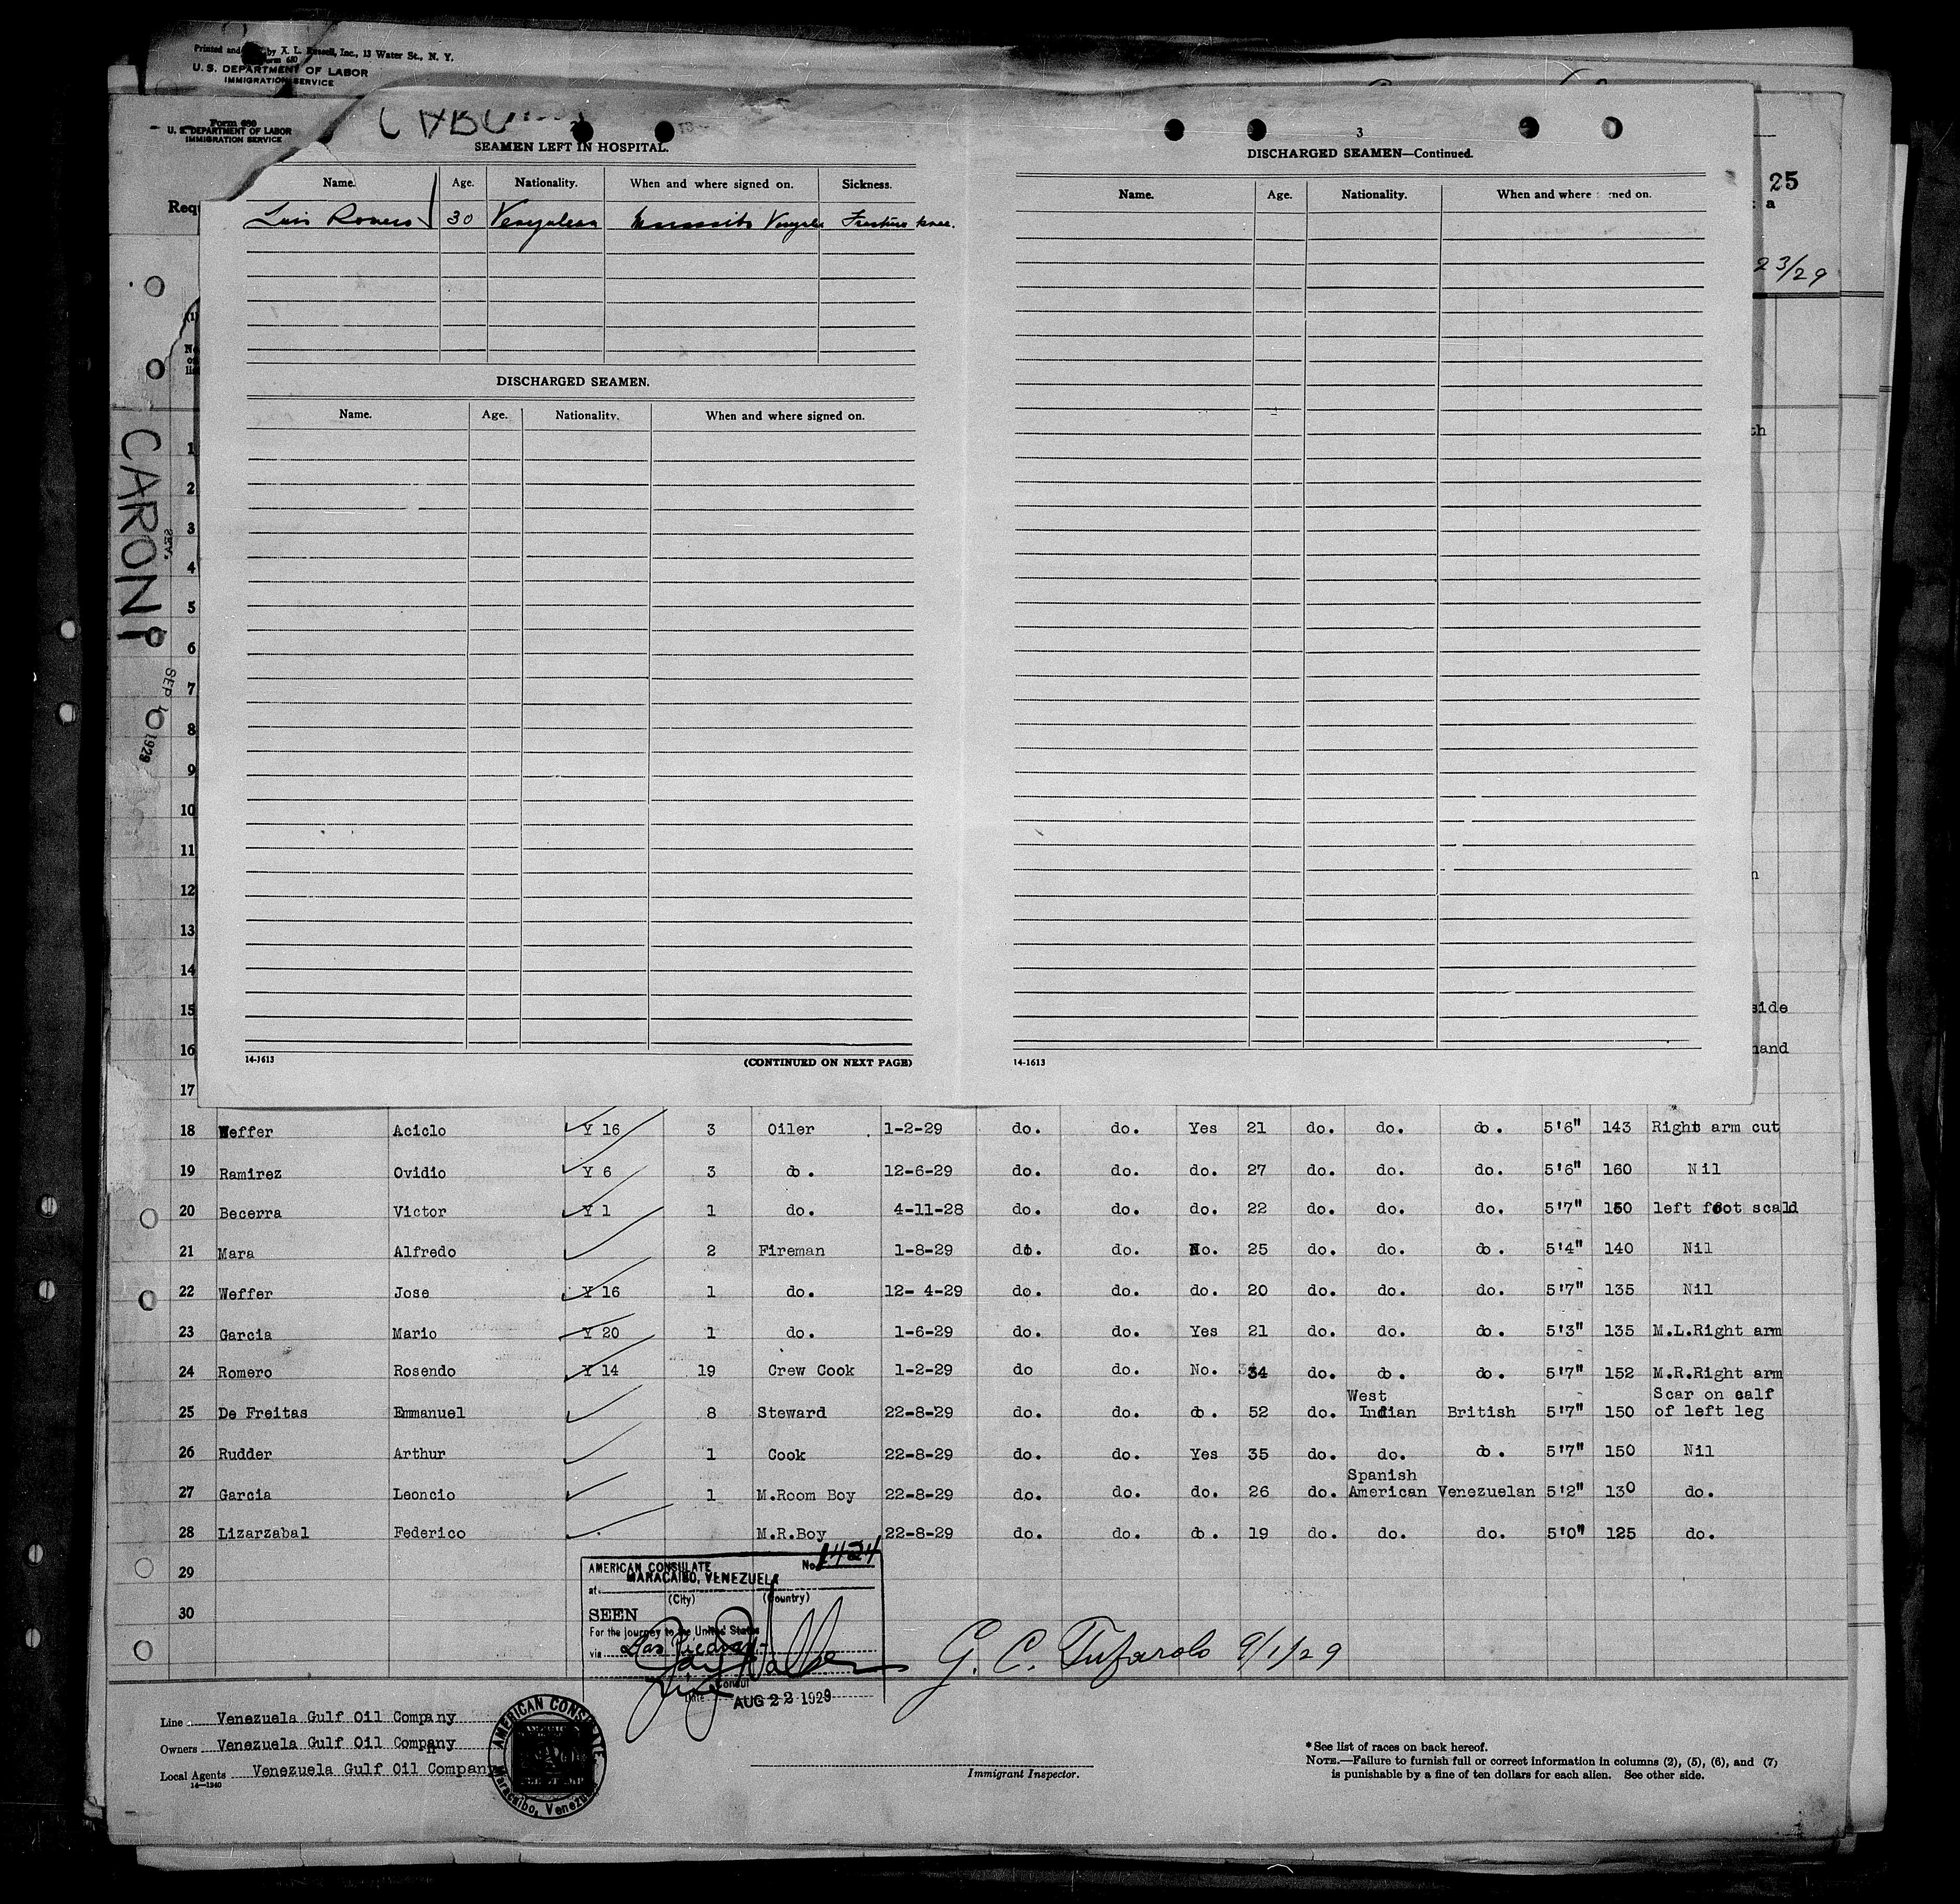 Printed and by A. L. Russell, Inc., 13 Water St., N. Y.
Form 680
U. S. DEPARTMENT OF LABOR
IMMIGRATION SERVICE
Form 680
U. S. DEPARTMENT OF LABOR
IMMIGRATION SERVICE
SEAMEN LEFT IN HOSPITAL.
Name. Age. Nationality. When and where signed on. Sickness.
Luis Romero 30 Fracture knee.
DISCHARGED SEAMEN.
Name. Age. Nationality. When and where signed on.
14-1613 (CONTINUED ON NEXT PAGE)
3
DISCHARGED SEAMEN—Continued.
Name. Age. Nationality. When and where signed on.
14-1613
25
a
23/29
th
n
side
hand
Requ
(1)
No
on
list
CARONI
SEP 10 1929
1
2
3
4
5
6
7
8
9
10
11
12
13
14
15
16
17
18 Weffer Aciclo Y 16 3 Oiler 1-2-29 do. do. Yes 21 do. do. do. 5'6" 143 Right arm cut
19 Ramirez Ovidio Y 6 3 do. 12-6-29 do. do. do. 27 do. do. do. 5'6" 160 Nil
20 Becerra Victor Y 1 1 do. 4-11-28 do. do. do. 22 do. do. do. 5'7" 150 left foot scald
21 Mara Alfredo 2 Fireman 1-8-29 do. do. No. 25 do. do. do. 5'4" 140 Nil
22 Weffer Jose Y 16 1 do. 12- 4-29 do. do. do. 20 do. do. do. 5'7" 135 Nil
23 Garcia Mario Y 20 1 do. 1-6-29 do. do. Yes 21 do. do. do. 5'3" 135 M.L.Right arm
24 Romero Rosendo Y 14 19 Crew Cook 1-2-29 do do. No. 34 do. do. do. 5'7" 152 M.R.Right arm
West Scar on calf
25 De Freitas Emmanuel 8 Steward 22-8-29 do. do. do. 52 do. Indian British 5'7" 150 of left leg
26 Rudder Arthur 1 Cook 22-8-29 do. do. Yes 35 do. do. do. 5'7" 150 Nil
Spanish
27 Garcia Leoncio 1 M.Room Boy 22-8-29 do. do. do. 26 do. American Venezuelan 5'2" 130 do.
28 Lizarzabal Federico M.R.Boy 22-8-29 do. do. do. 19 do. do. do. 5'0" 125 do.
29
30
AMERICAN CONSULATE No. 1424
at MARACAIBO, VENEZUELA
(City) (Country)
SEEN
For the journey to the United States
via Las Piedras
Jay Walker
Consul
Date AUG 22 1929
G. C. Tufarolo 9/1/29
Line Venezuela Gulf Oil Company
Owners Venezuela Gulf Oil Company
Local Agents Venezuela Gulf Oil Company
14—1240
AMERICAN CONSULATE
Maracaibo, Venezuela
Immigrant Inspector.
* See list of races on back hereof.
NOTE.—Failure to furnish full or correct information in columns (2), (5), (6), and (7)
is punishable by a fine of ten dollars for each alien. See other side.